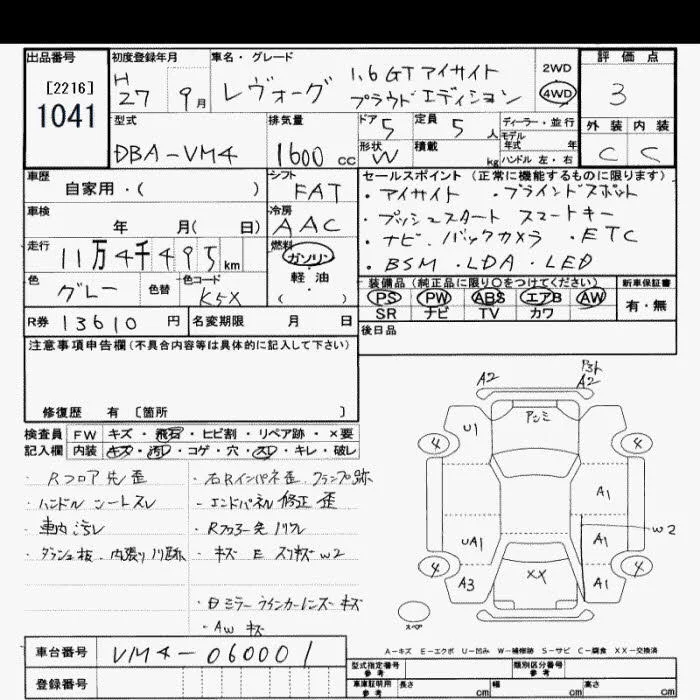 出品番号 初度登録年月 車名・グレード 評価点
[2216] H 27 9月 レヴォーグ 1.6GTアイサイト 2WD
1041 プラウドエディション 4WD 3
型式 排気量 ドア 定員 ディーラー・並行 外装 内装
DBA-VM4 1600cc 5 5人 モデル年式 年 C C
形状 積載 kg ハンドル 左・右
W
車歴 シフト セールスポイント (正常に機能するものに限ります)
自家用・( ) FAT ・アイサイト ・ブラインドスポット
車検 冷房 ・プッシュスタート スマートキー
年 月( 日) AAC ・ナビ・バックカメラ・ETC
走行 燃料 ・BSM・LDA・LED
11万4千495km ガソリン
色 色替 色コード 軽・油 装備品(純正品に限り○をつけてください) 新車保証書
グレー K5X ( ) PS PW ABS エアB AW 有・無
SR ナビ TV カワ
R券 13610円 名変期限 月 日 後日品
注意事項申告欄(不具合内容等は具体的に記入して下さい)
修復歴 有 [箇所 ]
検査員 FW キズ・飛石・ヒビ割・リペア跡・×要
記入欄 内装 キズ・汚レ・コゲ・穴・スレ・キレ・破レ
・Rフロア先歪 ・右Rインパネ歪 クランプ跡
・ハンドル シートスレ ・エンドパネル修正 歪
・車内汚レ ・Rフロアー先
・キズ E スリキズ W2
・日ミラーウインカーレンズキズ
・AWキズ
A2 A2
U1 アンミ
4 4
A1
W2
UA1 A1
4 4
A3 XX A1
スペア
A-キズ E-エクボ U-凹み W-補修跡 S-サビ C-腐食 XX-交換済
車台番号 VM4-060001
登録番号
型式指定番号 参考 類別区分番号 参考
車庫証明用 参考 長さ cm 幅 cm 高さ cm